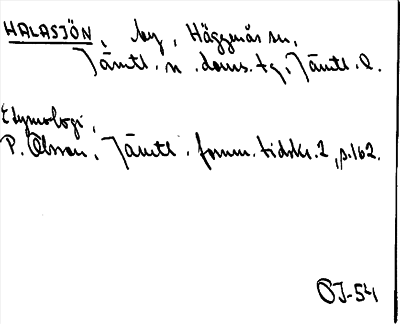 HALASJÖN, by, Häggenås sn,
Jämtl. n. doms. tg, Jämtl. l.
Etymologi,
P. Olsson, Jämtl. fornm. tidskr. 2, s. 162.
OJ-54